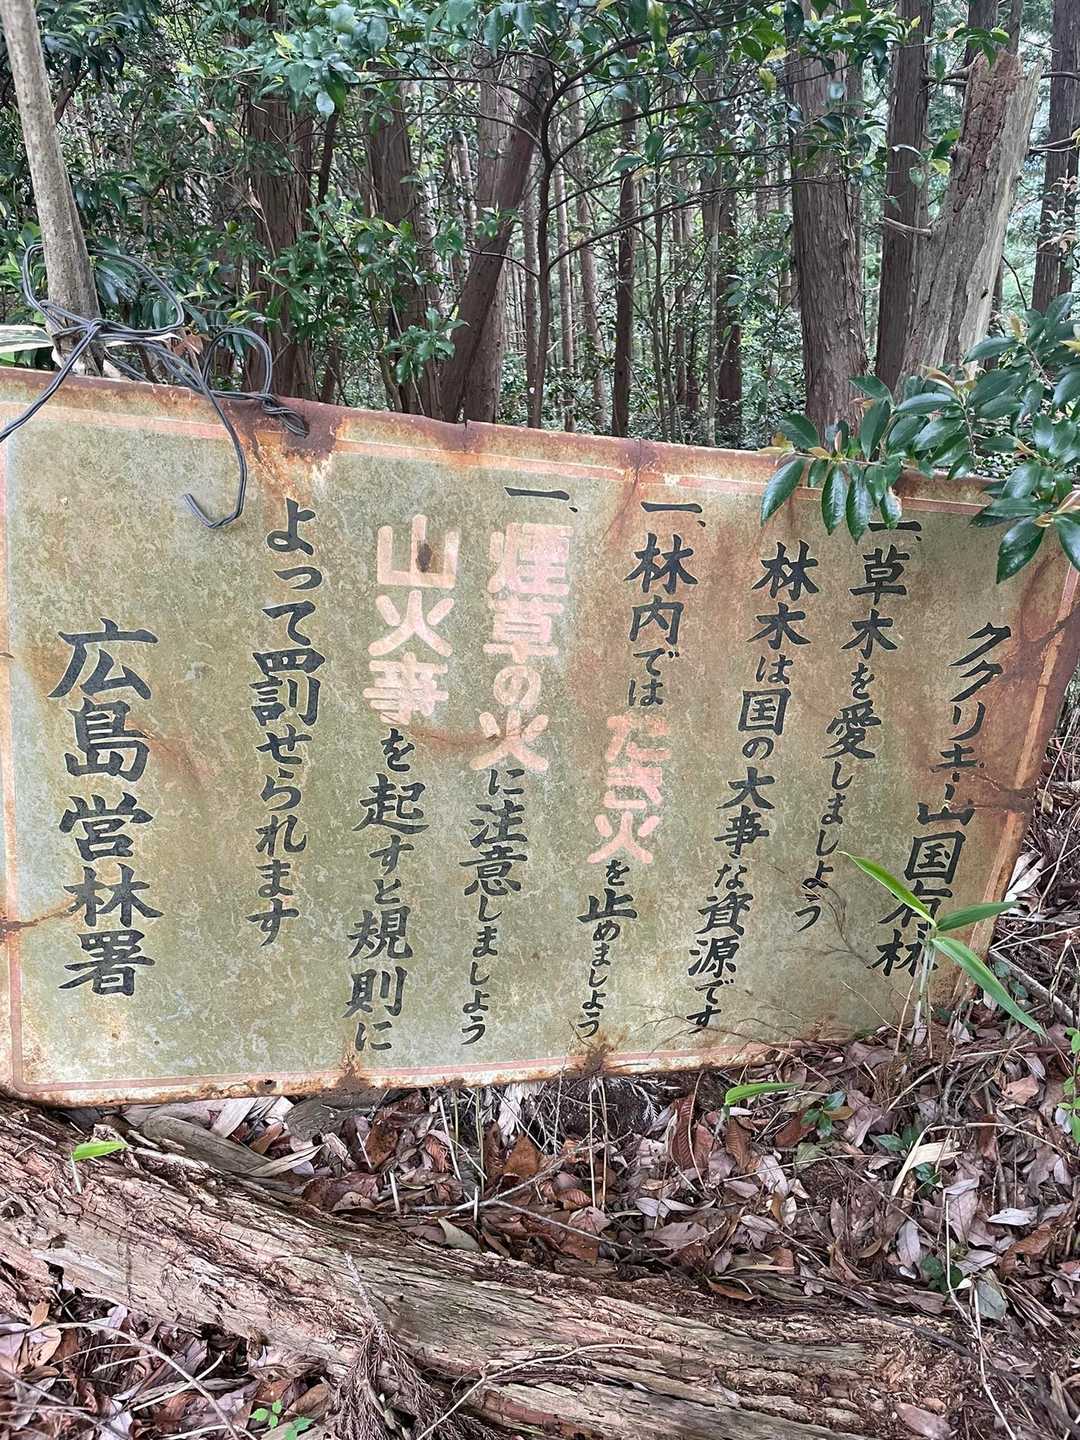 ククリキ山国有林
一、草木を愛しましょう
林木は国の大事な資源です
一、林内ではたき火を止めましょう
一、煙草の火に注意しましよう
山火事を起すと規則に
よって罰せられます
広島営林署